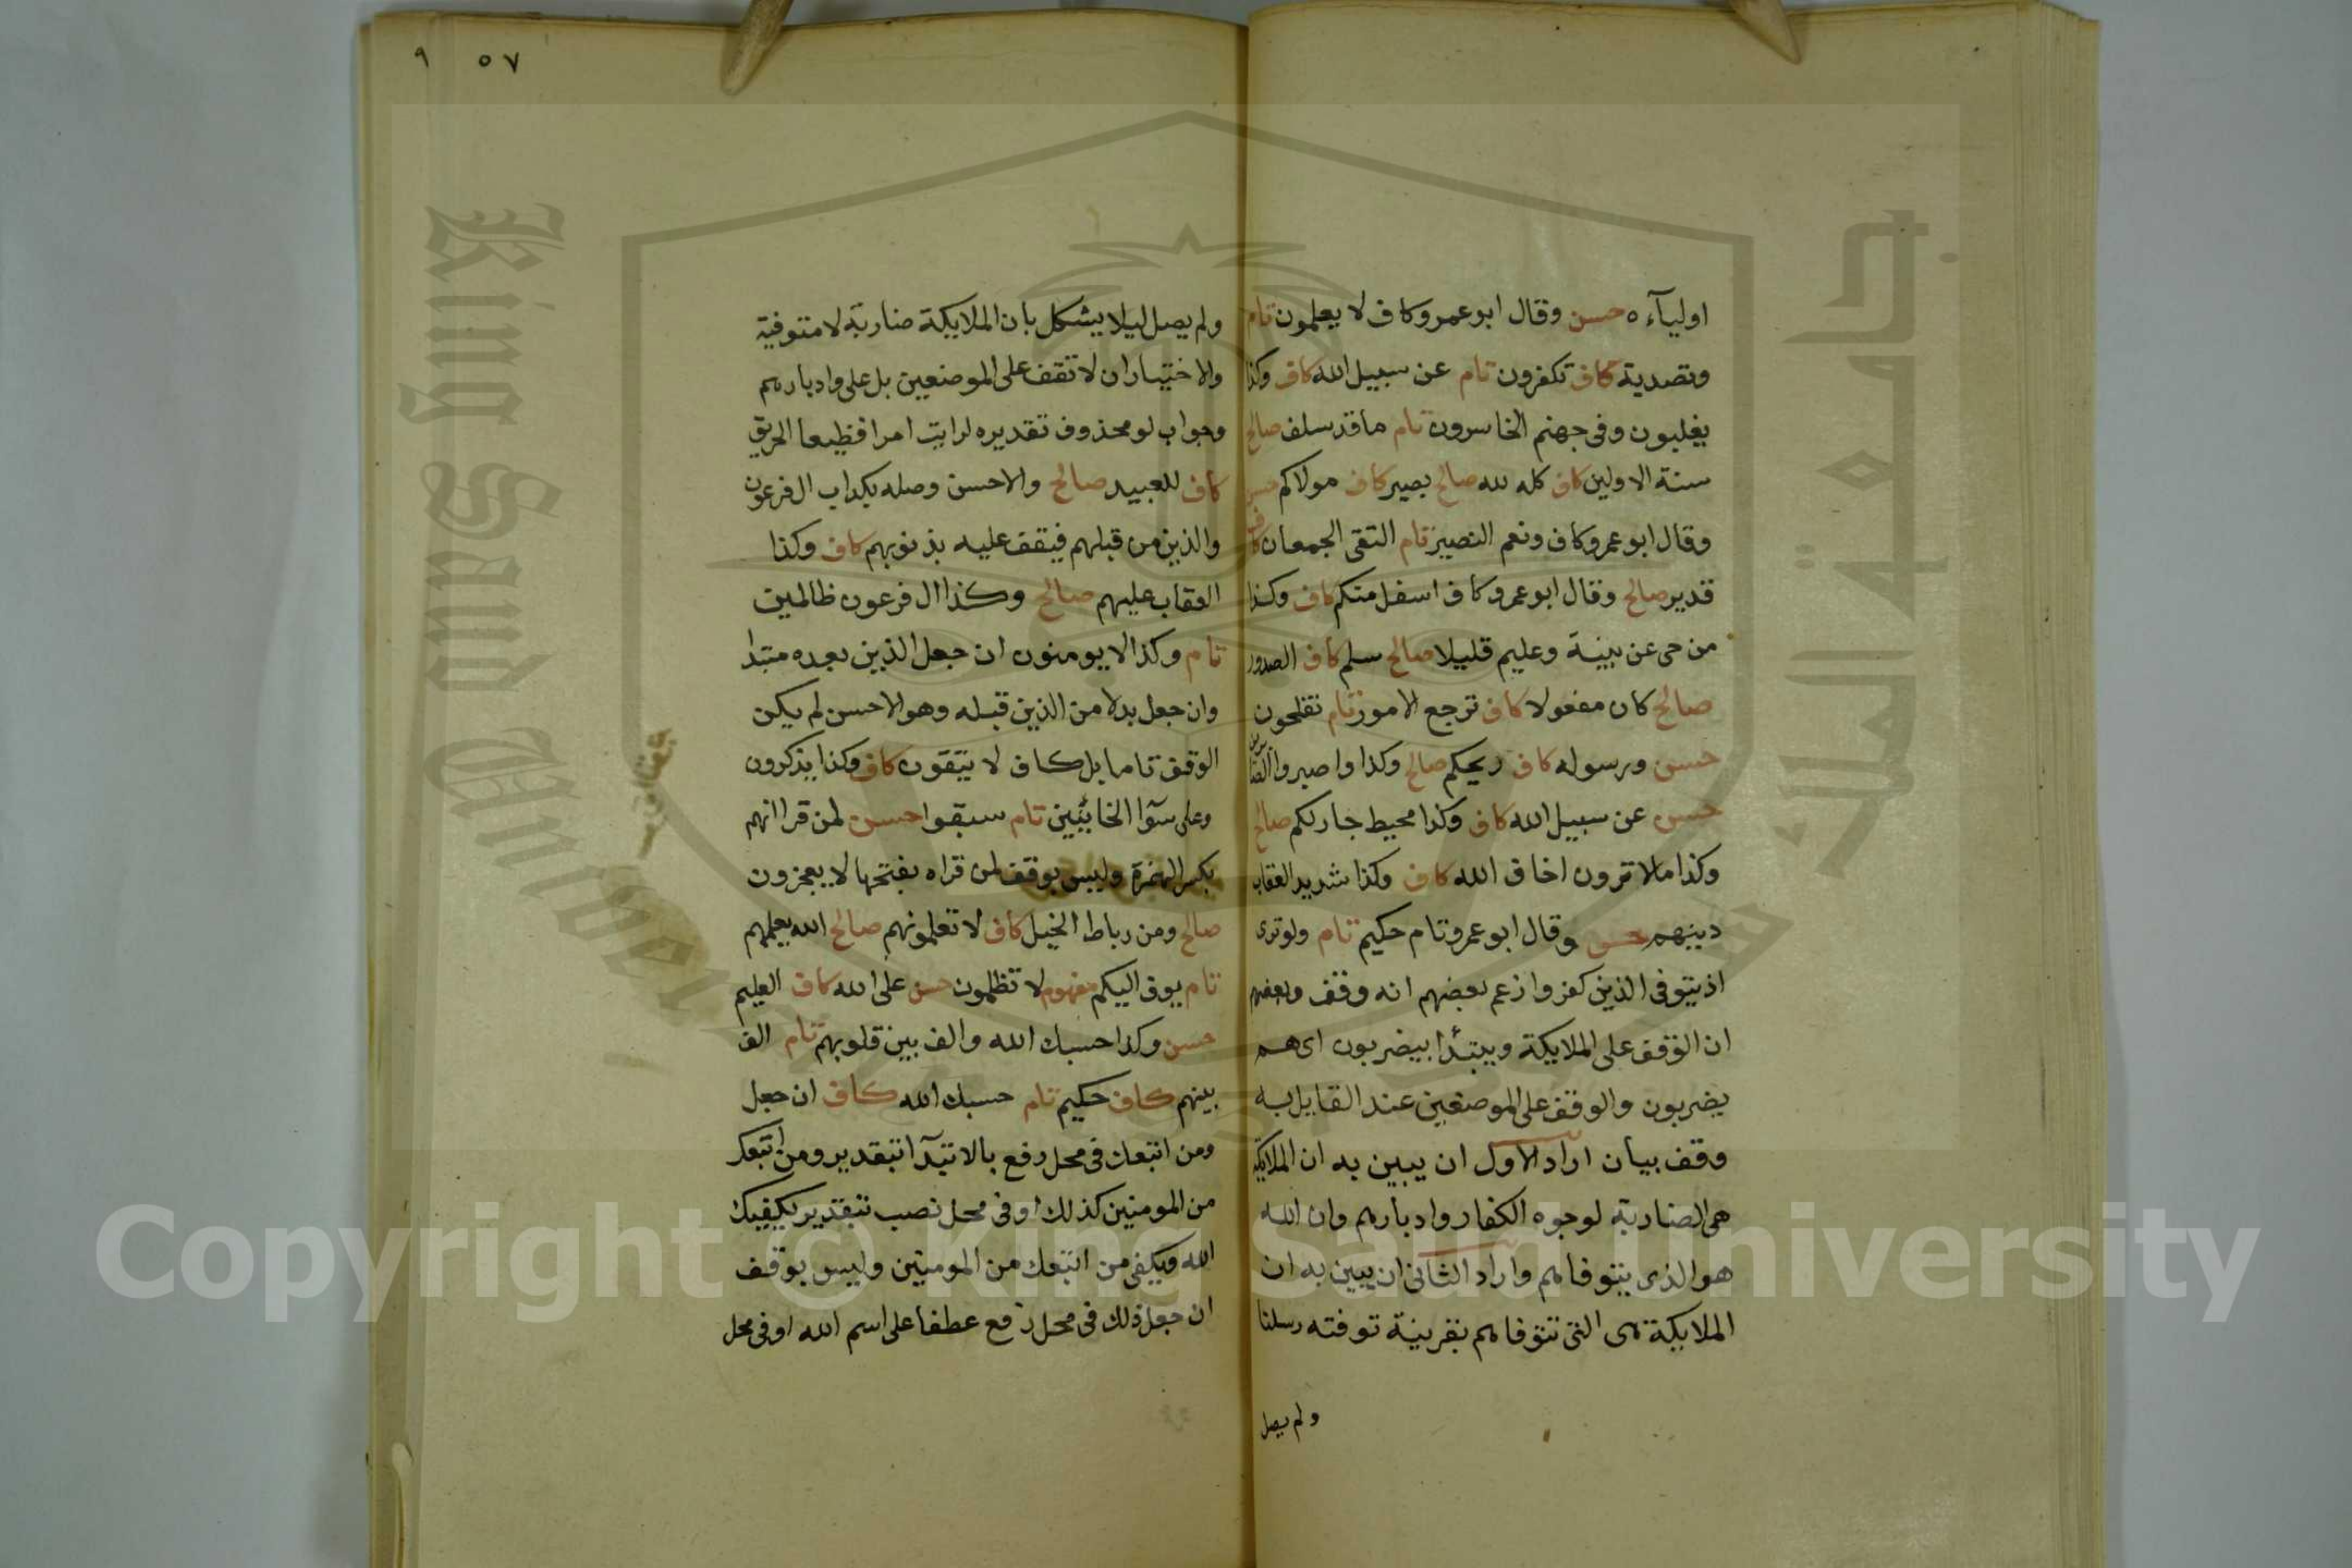 اولياءه حسن وقال ابو عمرو كاف لا يعلمون تام
وتصدية كاف تكفرون تام عن سبيل الله كاف وكذا
يغلبون وفى جهنم الخاسرون تام ما قد سلف صالح
سنة الاولين كاف كله لله صالح بصير كاف مولاكم حسن
وقال ابو عمرو كاف ونعم النصير تام التقى الجمعان كاف
قدير صالح وقال ابو عمرو كاف اسفل منكم كاف وكذا
من حى عن بينة وعليم قليلا صالح سلم كاف الصدور
صالح كان مفعولا كاف ترجع الامور تام تفلحون
حسن ورسوله كاف ريحكم صالح وكذا واصبروا
حسن عن سبيل الله كاف وكذا محيط جار لكم صالح
وكذا ما لا ترون اخاف الله كاف وكذا شديد العقاب
دينهم حسن وقال ابو عمرو تام حكيم تام ولو ترى
اذ يتوفى الذين كفروا زعم بعضهم انه وقف وبعضهم
ان الوقف على الملايكة ويبتدأ بيضربون اى هم
يضربون والوقف على الموضعين عند القايل به
وقف بيان اراد الاول ان يبين به ان الملايكة
هى الضاربة لوجوه الكفار وادبارهم وان الله
هو الذى يتوفاهم واراد الثانى ان يبين به ان
الملايكة هى التى تتوفاهم بقرينة توفته رسلنا
ولم يصل
٥٧ ٩
ولم يصل ليلا يشكل بان الملايكة ضاربة لا متوفية
والاختيار ان لا تقف على الموضعين بل على وادبارهم
وجواب لو محذوف تقديره لرايت امرا فظيعا الحريق
كاف للعبيد صالح والاحسن وصله بكداب ال فرعون
والذين من قبلهم فيقف عليه بذنوبهم كاف وكذا
العقاب عليهم صالح وكذا ال فرعون ظالمين
تام وكذا لا يومنون ان جعل الذين بعده مبتدا
وان جعل بدلا من الذين قبله وهو الاحسن لم يكن
الوقف تاما بل كاف لا يتقون كاف وكذا يذكرون
وعلى سوآ الخائنين تام سبقوا حسن لمن قرا انهم
بكسر الهمزة وليس بوقف لمن قراه بفتحها لا يعجزون
صالح ومن رباط الخيل كاف لا تعلمونهم صالح الله يعلمهم
تام يوف اليكم مفهوم لا تظلمون حسن على الله كاف العليم
حسن وكذا حسبك الله والف بين قلوبهم تام الف
بينهم كاف حكيم تام حسبك الله كاف ان جعل
ومن اتبعك فى محل رفع بالابتدآ بتقدير ومن اتبعك
من المومنين كذلك او فى محل نصب بتقدير يكفيك
الله ويكفى من اتبعك من المومنين وليس بوقف
ان جعل ذلك فى محل رفع عطفا على اسم الله او فى محل
King Saud University
Copyright © King Saud University